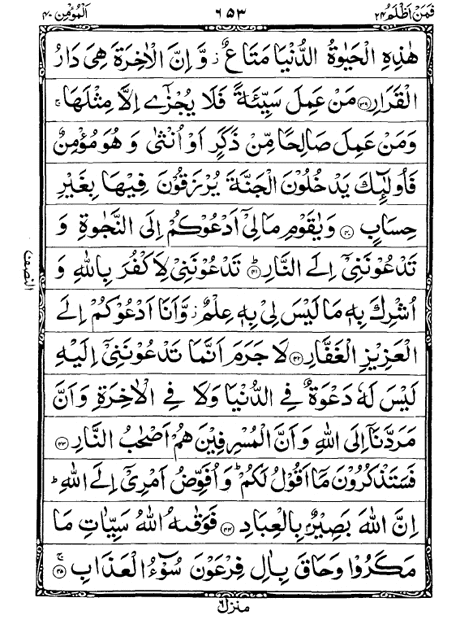 فمن اظلم ٢٤ ٦٥٣ المؤمن ٤٠
هٰذِهِ الْحَيٰوةُ الدُّنْيَا مَتَاعٌ ز وَّ اِنَّ الْاٰخِرَةَ هِيَ دَارُ
الْقَرَارِ ﴿٣٩﴾ مَنْ عَمِلَ سَيِّئَةً فَلَا يُجْزٰٓى اِلَّا مِثْلَهَا ج
وَمَنْ عَمِلَ صَالِحًا مِّنْ ذَكَرٍ اَوْ اُنْثٰى وَ هُوَ مُؤْمِنٌ
فَاُولٰٓئِكَ يَدْخُلُوْنَ الْجَنَّةَ يُرْزَقُوْنَ فِيْهَا بِغَيْرِ
حِسَابٍ ﴿٤٠﴾ وَيٰقَوْمِ مَالِيْٓ اَدْعُوْكُمْ اِلَى النَّجٰوةِ وَ
تَدْعُوْنَنِيْٓ اِلَى النَّارِ ﴿٤١﴾ تَدْعُوْنَنِيْ لِاَكْفُرَ بِاللّٰهِ وَ
اُشْرِكَ بِهٖ مَا لَيْسَ لِيْ بِهٖ عِلْمٌ ز وَّاَنَا اَدْعُوْكُمْ اِلَى
الْعَزِيْزِ الْغَفَّارِ ﴿٤٢﴾ لَا جَرَمَ اَنَّمَا تَدْعُوْنَنِيْٓ اِلَيْهِ
لَيْسَ لَهٗ دَعْوَةٌ فِي الدُّنْيَا وَلَا فِي الْاٰخِرَةِ وَاَنَّ
مَرَدَّنَآ اِلَى اللّٰهِ وَاَنَّ الْمُسْرِفِيْنَ هُمْ اَصْحٰبُ النَّارِ ﴿٤٣﴾
فَسَتَذْكُرُوْنَ مَآ اَقُوْلُ لَكُمْ ط وَ اُفَوِّضُ اَمْرِيْٓ اِلَى اللّٰهِ ط
اِنَّ اللّٰهَ بَصِيْرٌۢ بِالْعِبَادِ ﴿٤٤﴾ فَوَقٰىهُ اللّٰهُ سَيِّاٰتِ مَا
مَكَرُوْا وَحَاقَ بِاٰلِ فِرْعَوْنَ سُوْٓءُ الْعَذَابِ ﴿٤٥﴾ ج
النصف
منزل ٦